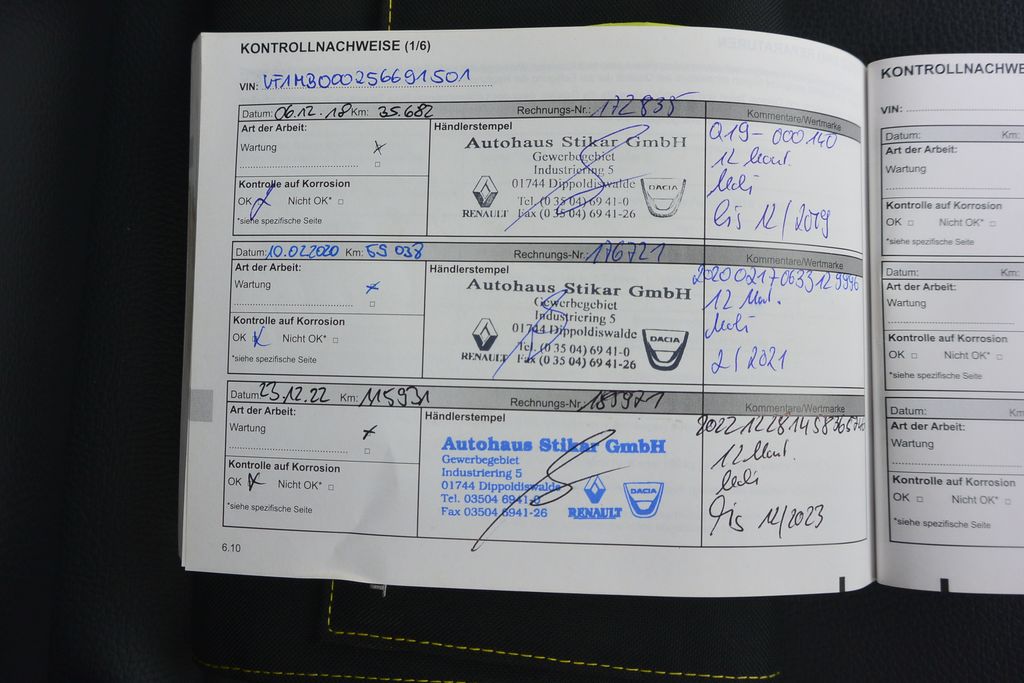 KONTROLLNACHWEISE (1/6)
VIN: VF1MB000256691501
Datum: 06.12.18 Km: 35.682 Rechnungs-Nr.: 172835 Kommentare/Wertmarke
Art der Arbeit: Händlerstempel
Wartung
Kontrolle auf Korrosion
OK Nicht OK* □
*siehe spezifische Seite
Autohaus Stikar GmbH
Gewerbegebiet
Industriering 5
01744 Dippoldiswalde
Tel. (0 35 04) 69 41-0
Fax (0 35 04) 69 41-26
RENAULT DACIA
Q19-000140
12 Monat.
bis 12/2019
Datum: 10.02.2020 Km: 59 038 Rechnungs-Nr.: 176721 Kommentare/Wertmarke
Art der Arbeit: Händlerstempel
Wartung
Kontrolle auf Korrosion
OK Nicht OK* □
*siehe spezifische Seite
Autohaus Stikar GmbH
Gewerbegebiet
Industriering 5
01744 Dippoldiswalde
Tel. (0 35 04) 69 41-0
Fax (0 35 04) 69 41-26
RENAULT DACIA
12 Mon.
2/2021
Datum: 23.12.22 Km: 115931 Rechnungs-Nr.: Kommentare/Wertmarke
Art der Arbeit: Händlerstempel
Wartung
Kontrolle auf Korrosion
OK Nicht OK* □
*siehe spezifische Seite
Autohaus Stikar GmbH
Gewerbegebiet
Industriering 5
01744 Dippoldiswalde
Tel. 03504 6941-0
Fax 03504 6941-26
RENAULT DACIA
12 Monat.
Bis 12/2023
6.10
KONTROLLNACHWE
VIN:
Datum: Km:
Art der Arbeit:
Wartung
Kontrolle auf Korrosion
OK □ Nicht OK* □
*siehe spezifische Seite
Datum: Km:
Art der Arbeit:
Wartung
Kontrolle auf Korrosion
OK □ Nicht OK* □
*siehe spezifische Seite
Datum: Km
Art der Arbeit:
Wartung
Kontrolle auf Korrosion
OK □ Nicht OK* □
*siehe spezifische Seite